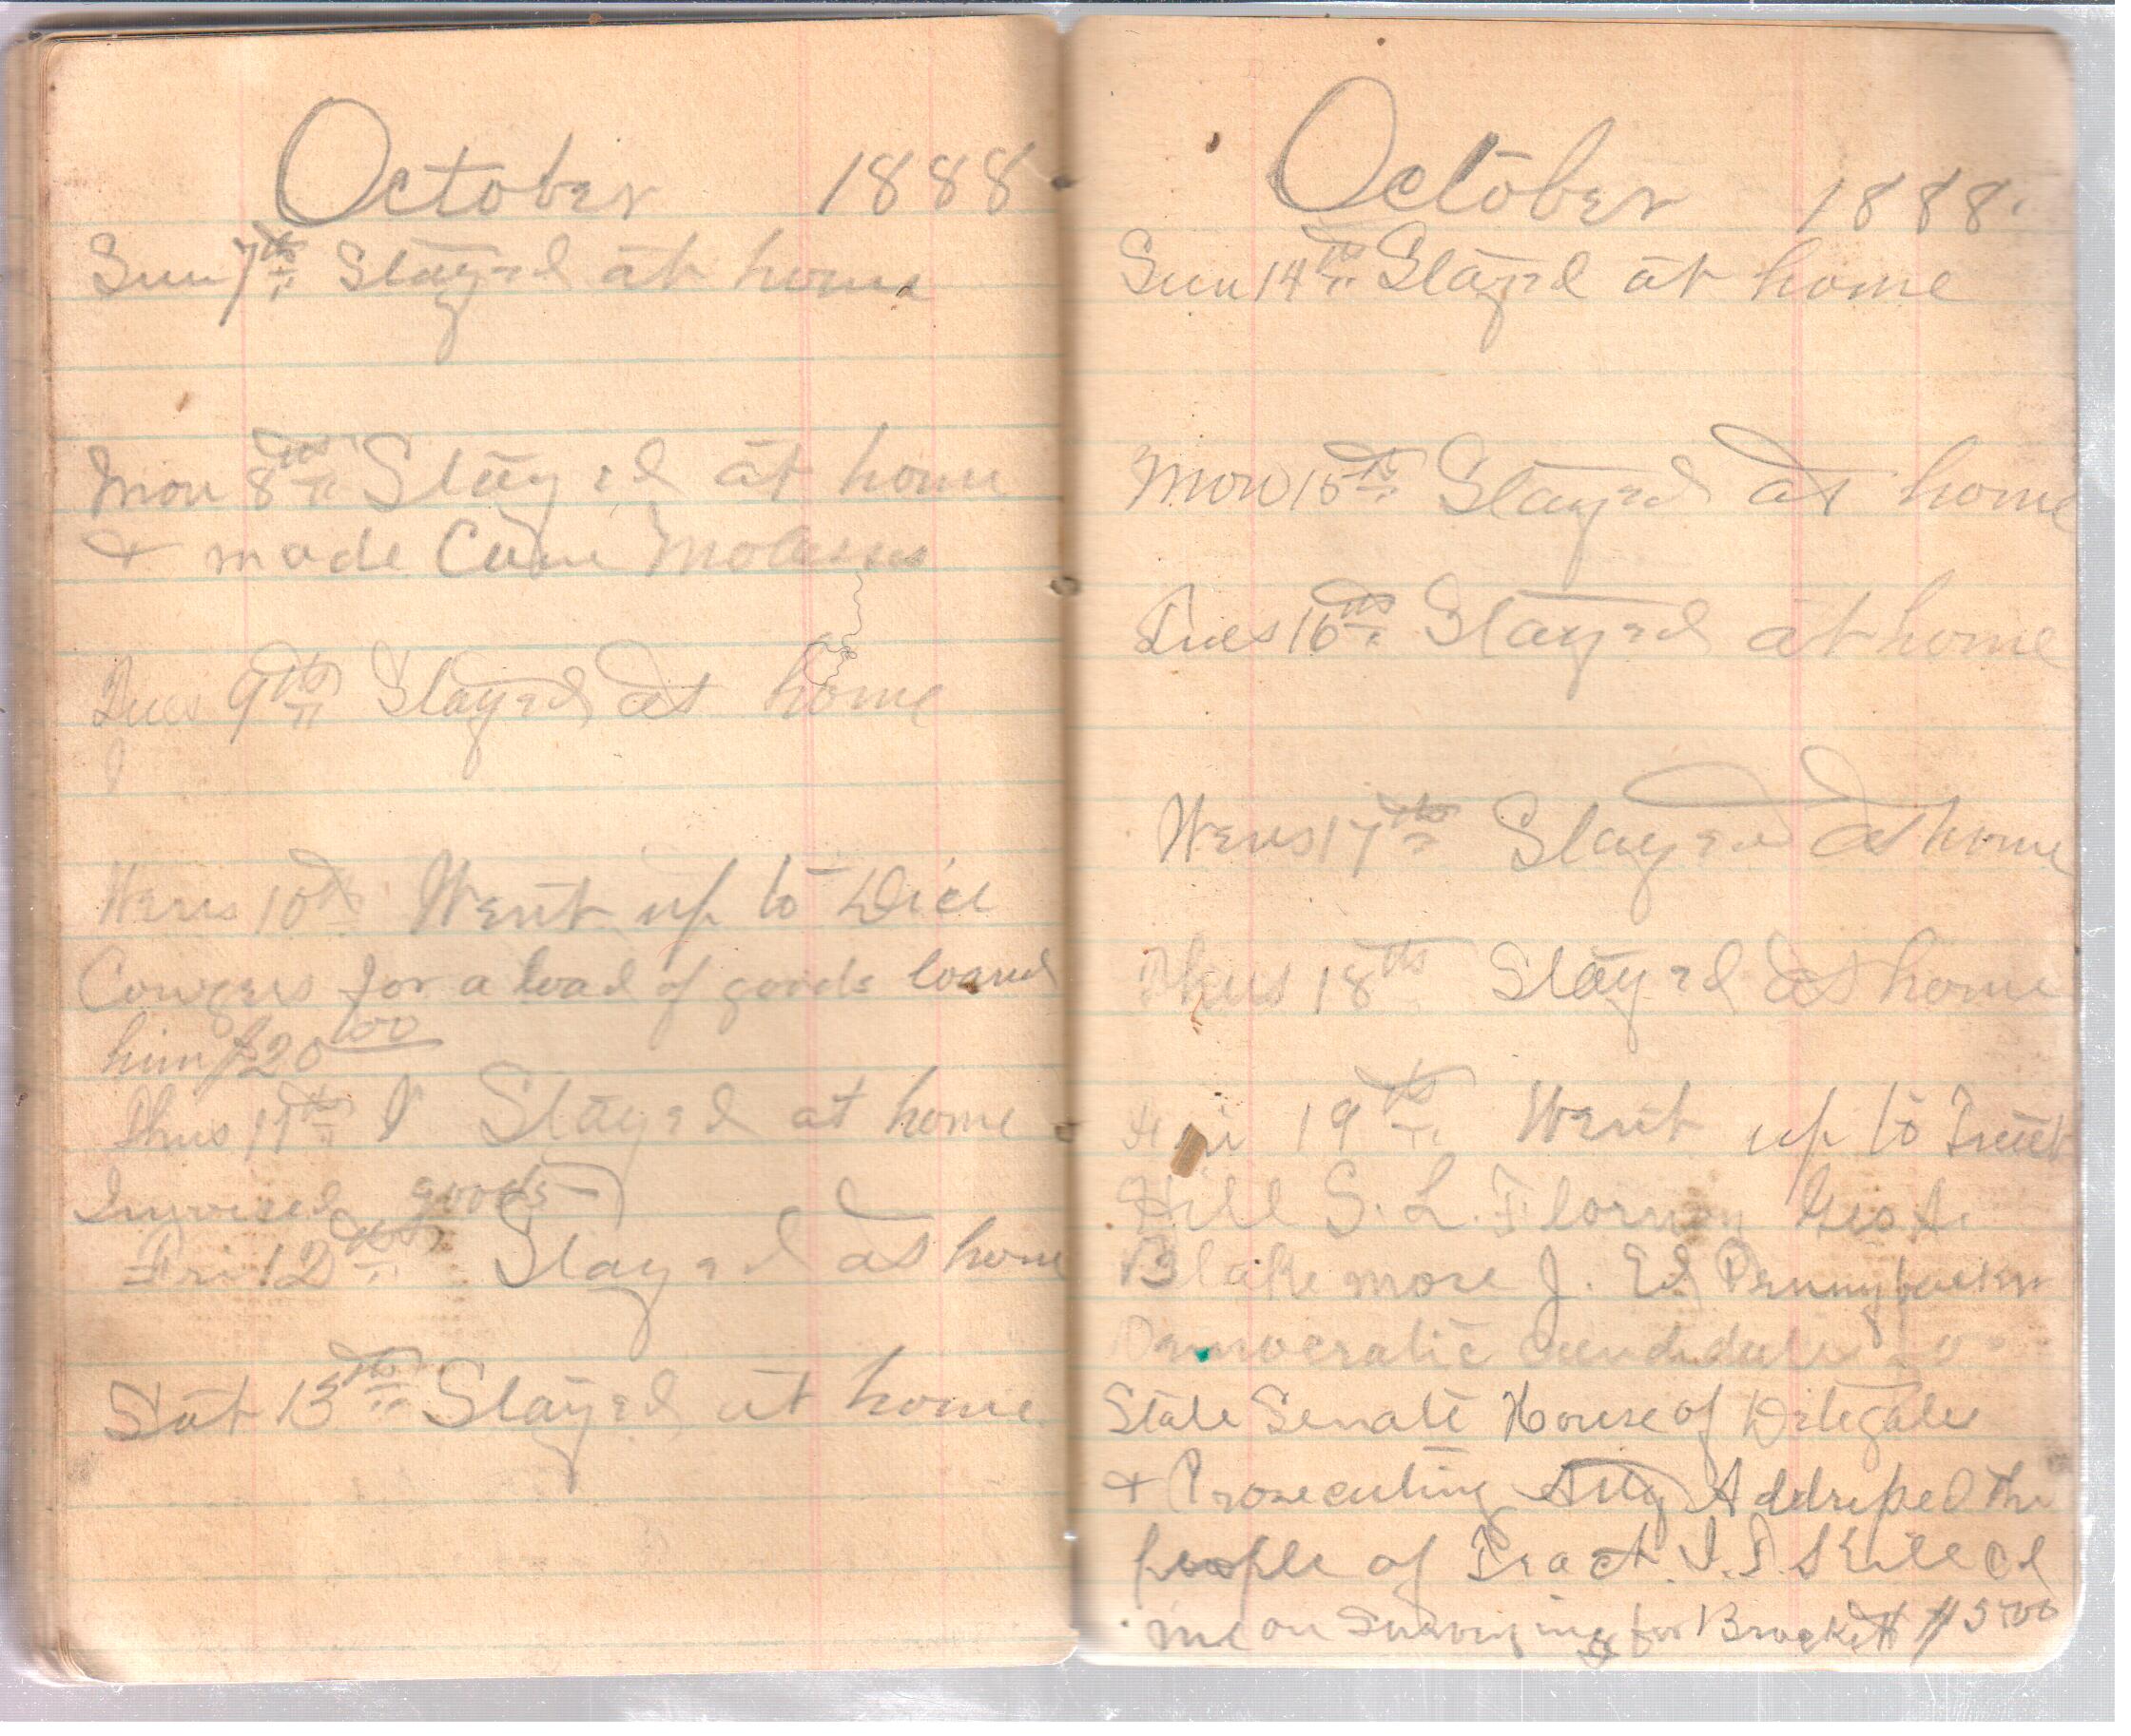 October 1888
Sun 7th Stayed at home
Mon 8th Stayed at home
& made Cane Molasses
Tues 9th Stayed at home
Wens 10th Went up to Dice
Cowgers for a load of goods loaned
him $20.00
Thus 11th I Stayed at home
Invoiced goods
Fri 12th Stayed at home
Sat 13th Stayed at home
October 1888.
Sun 14th Stayed at home
Mon 15th Stayed at home
Tues 16th Stayed at home
Wens 17th Stayed at home
Thus 18th Stayed at home
Fri 19th Went up to
Hill S. L. Flornoy Geo A.
Blakemore J. Ed Pennybacker
Democratic Candidates for
State Senate House of Delegates
& Prosecuting Atty Addressed the
people of Tract.
me on Surveying for Brackett